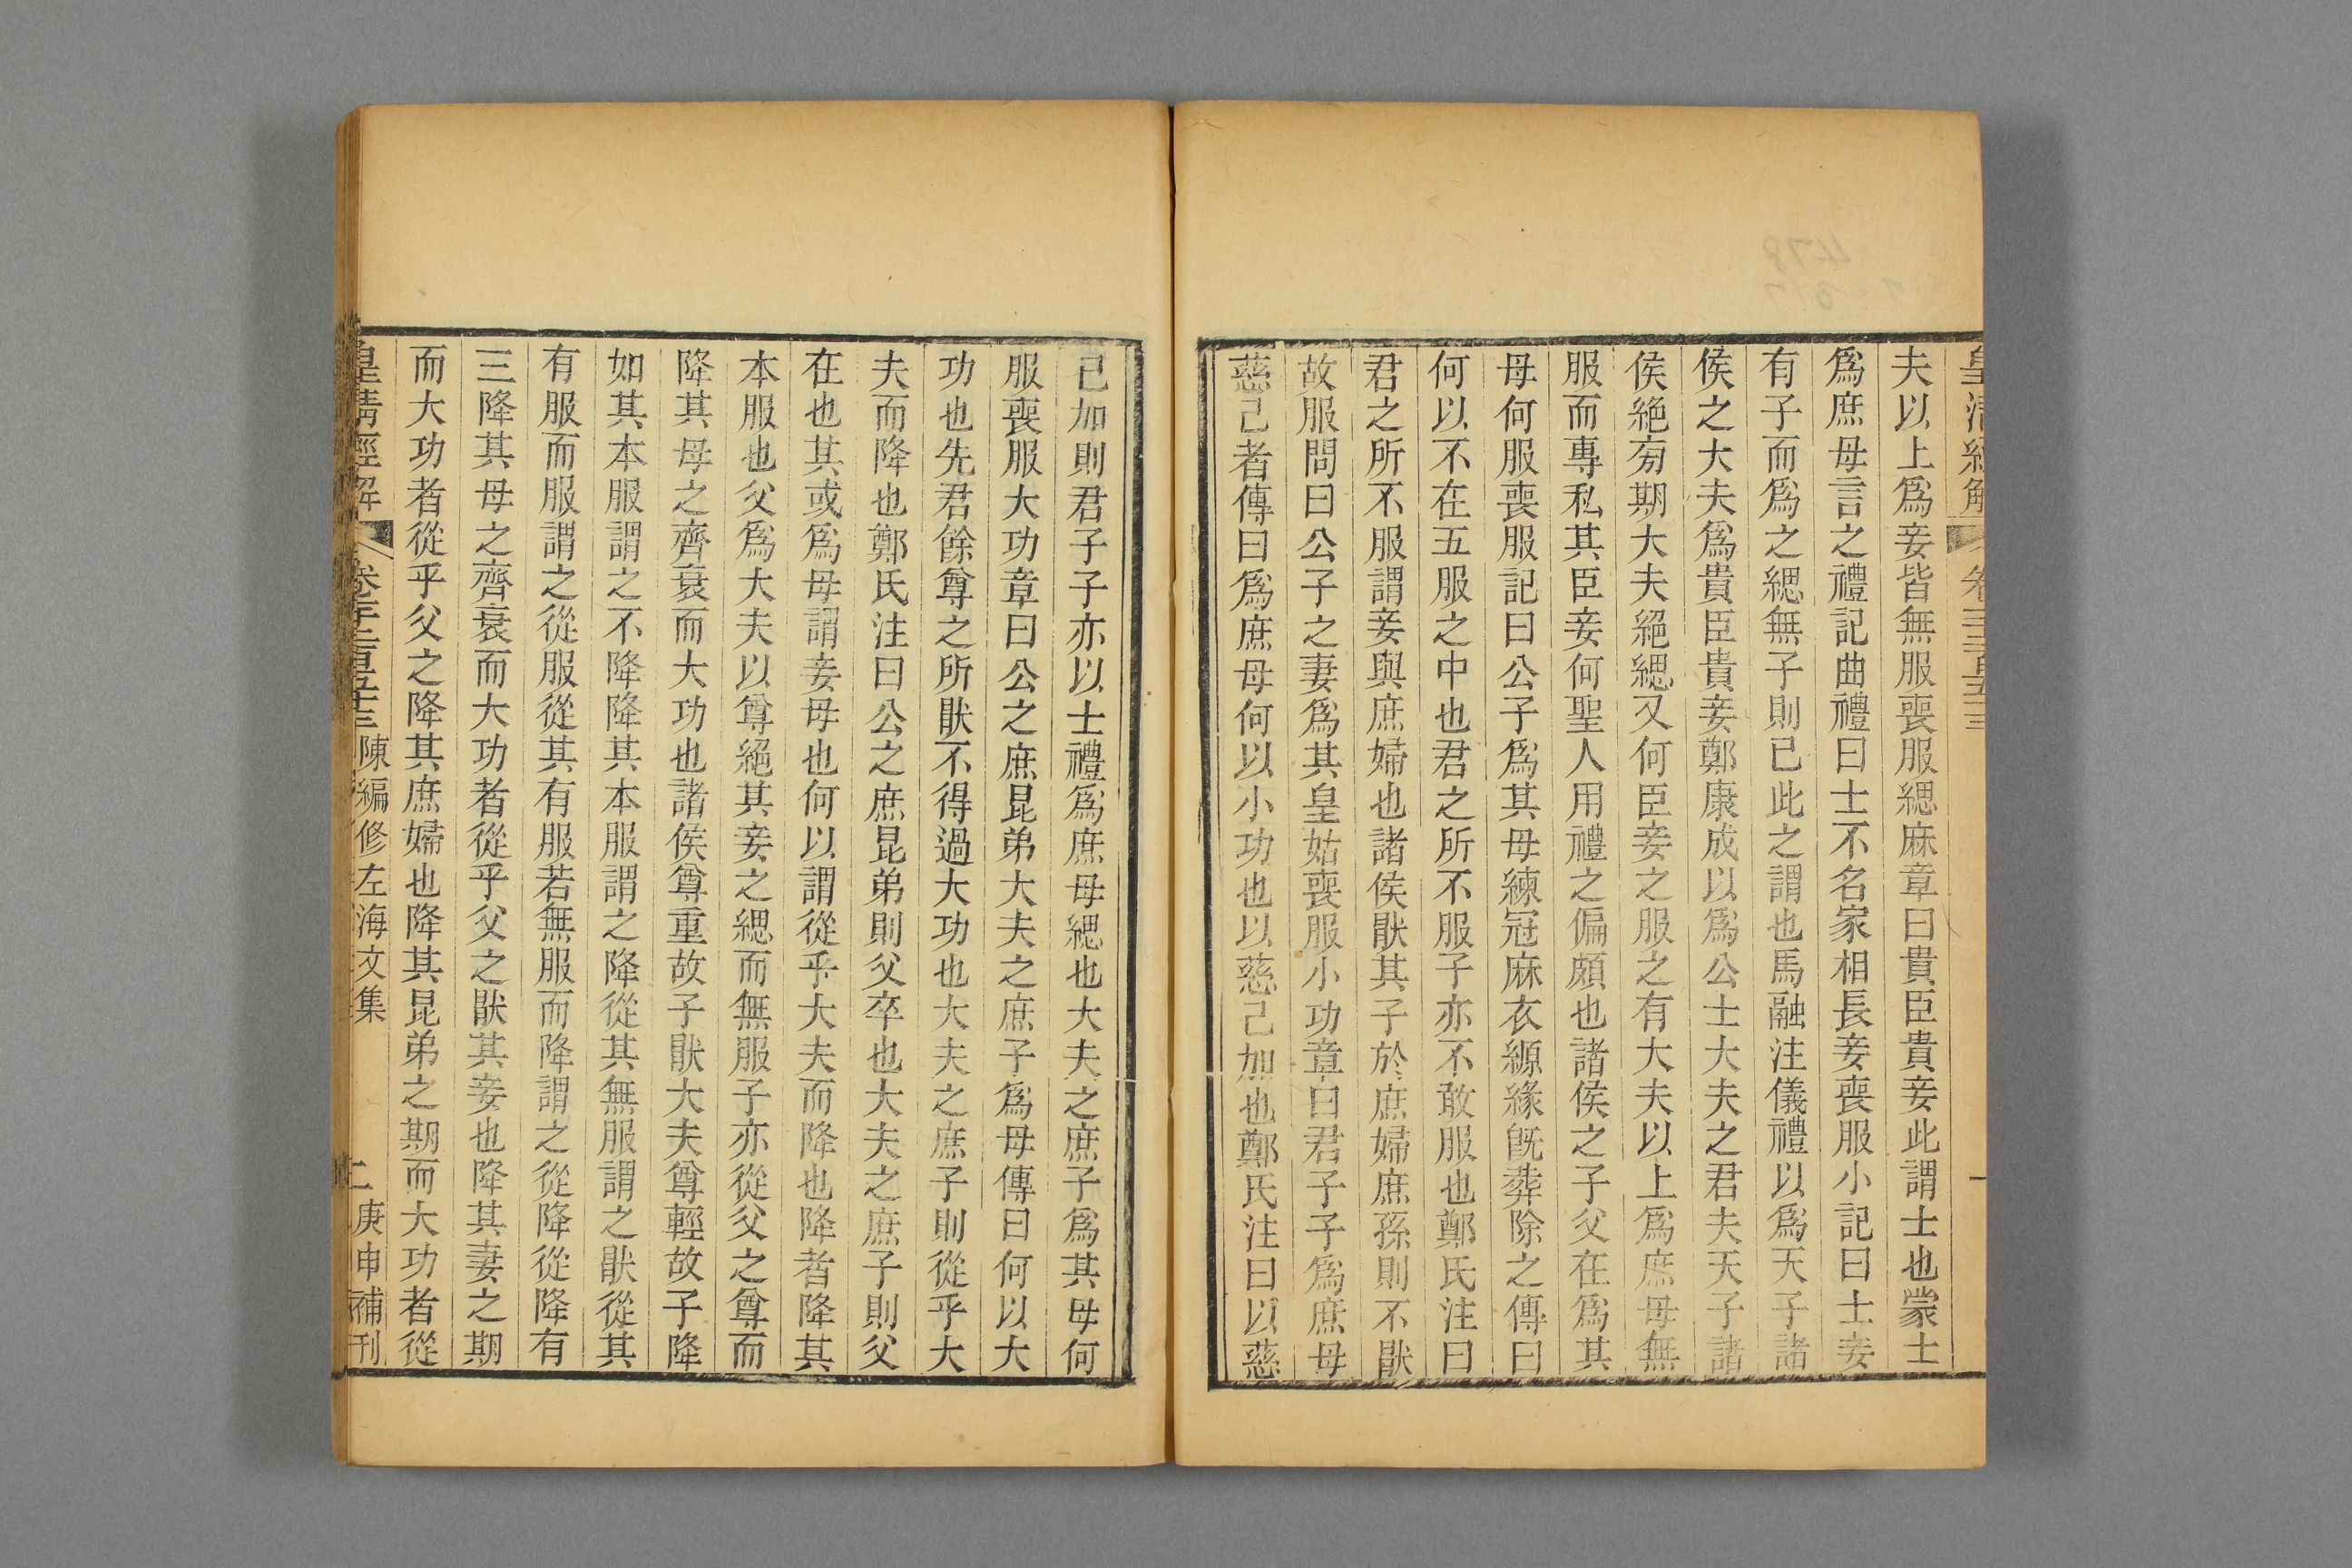 皇清經解
夫以上爲妾皆無服喪服緦麻章曰貴臣貴妾此謂士也蒙士
爲庶母言之禮記曲禮曰士不名家相長妾喪服小記曰士妾
有子而爲之緦無子則已此之謂也馬融注儀禮以爲天子諸
侯之大夫爲貴臣貴妾鄭康成以爲公士大夫之君夫天子諸
侯絕旁期大夫絕緦又何臣妾之服之有大夫以上爲庶母無
服而專私其臣妾何聖人用禮之偏頗也諸侯之子父在爲其
母何服喪服記曰公子爲其母練冠麻衣縓緣旣葬除之傳曰
何以不在五服之中也君之所不服子亦不敢服也鄭氏注曰
君之所不服謂妾與庶婦也諸侯猒其子於庶婦庶孫則不猒
故服問曰公子之妻爲其皇姑喪服小功章曰君子子爲庶母
慈己者傳曰爲庶母何以小功也以慈己加也鄭氏注曰以慈
己加則君子子亦以士禮爲庶母緦也大夫之庶子爲其母何
服喪服大功章曰公之庶昆弟大夫之庶子爲母傳曰何以大
功也先君餘尊之所猒不得過大功也大夫之庶子則從乎大
夫而降也鄭氏注曰公之庶昆弟則父卒也大夫之庶子則父
在也其或爲母謂妾母也何以謂從乎大夫而降也降者降其
本服也父爲大夫以尊絕其妾之緦而無服子亦從父之尊而
降其母之齊衰而大功也諸侯尊重故子猒大夫尊輕故子降
如其本服謂之不降降其本服謂之降從其無服謂之猒從其
有服而服謂之從服從其有服若無服而降謂之從降從降有
三降其母之齊衰而大功者從乎父之猒其妾也降其妻之期
而大功者從乎父之降其庶婦也降其昆弟之期而大功者從
皇清經解 卷千二百五十三 陳編修左海文集 二 庚申補刊